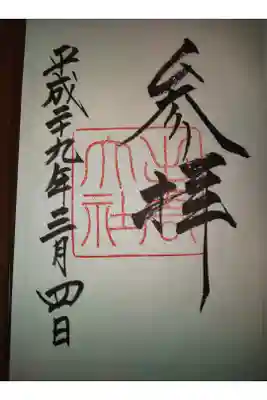 参拝
出雲
大社
平成二十九年三月四日